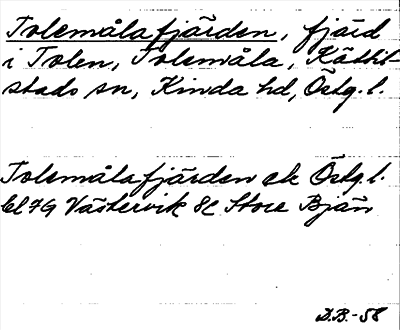 Tolemålafjärden, fjärd
i Tolen, Tolemåla, Kättil-
stads sn, Kinda hd, Östg. l.
Tolemålafjärden ek Östg. l.
bl 7G Västervik 8c Store Bjän
D.B.-58